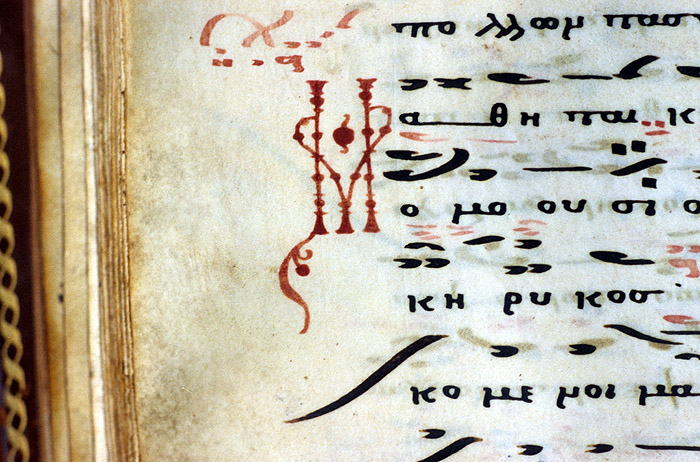 πο λλων πασ
Μα θη
ο μο ου σι ο
κη ρυ κοσ
κο με νοι μα